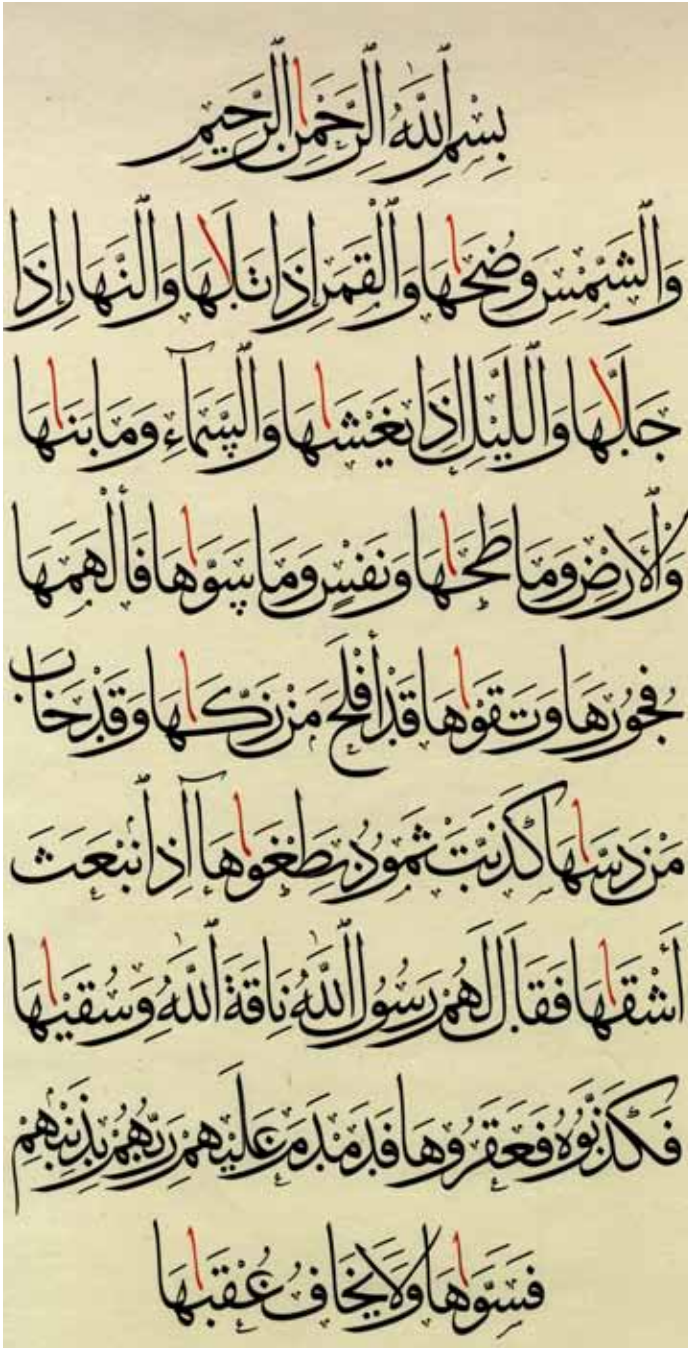 بِسْمِ ٱللَّهِ ٱلرَّحْمَٰنِ ٱلرَّحِيمِ
وَٱلشَّمْسِ وَضُحَىٰهَا وَٱلْقَمَرِ إِذَا تَلَىٰهَا وَٱلنَّهَارِ إِذَا
جَلَّىٰهَا وَٱللَّيْلِ إِذَا يَغْشَىٰهَا وَٱلسَّمَآءِ وَمَا بَنَىٰهَا
وَٱلْأَرْضِ وَمَا طَحَىٰهَا وَنَفْسٍ وَمَا سَوَّىٰهَا فَأَلْهَمَهَا
فُجُورَهَا وَتَقْوَىٰهَا قَدْ أَفْلَحَ مَنْ زَكَّىٰهَا وَقَدْ خَابَ
مَنْ دَسَّىٰهَا كَذَّبَتْ ثَمُودُ بِطَغْوَىٰهَآ إِذِ ٱنْبَعَثَ
أَشْقَىٰهَا فَقَالَ لَهُمْ رَسُولُ ٱللَّهِ نَاقَةَ ٱللَّهِ وَسُقْيَٰهَا
فَكَذَّبُوهُ فَعَقَرُوهَا فَدَمْدَمَ عَلَيْهِمْ رَبُّهُمْ بِذَنْبِهِمْ
فَسَوَّىٰهَا وَلَا يَخَافُ عُقْبَٰهَا